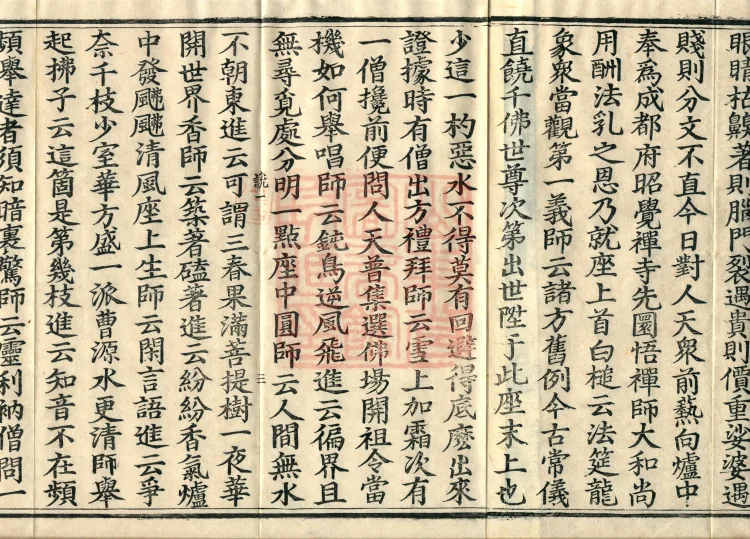 眼睛枯齅著則腦門裂遇貴則價重娑婆遇
賤則分文不直今日對人天衆前爇向爐中
奉爲成都府昭覺禪寺先圜悟禪師大和尚
用酬法乳之恩乃就座上首白槌云法筵龍
象衆當觀第一義師云諸方舊例今古常儀
直饒千佛世尊次第出世陞于此座末上也
少這一杓惡水不得莫有回避得底麽出來
證據時有僧出方禮拜師云雪上加霜次有
一僧攙前便問人天普集選佛場開祖令當
機如何舉唱師云鈍鳥逆風飛進云徧界且
無尋覓處分明一點座中圓師云人間無水
說一 三
不朝東進云可謂三春果滿菩提樹一夜華
開世界香師云築著磕著進云紛紛香氣爐
中發颼颼清風座上生師云閑言語進云爭
奈千枝少室華方盛一派曹源水更清師舉
起拂子云這箇是第幾枝進云知音不在頻
頻舉達者須知暗裏驚師云靈利衲僧問一